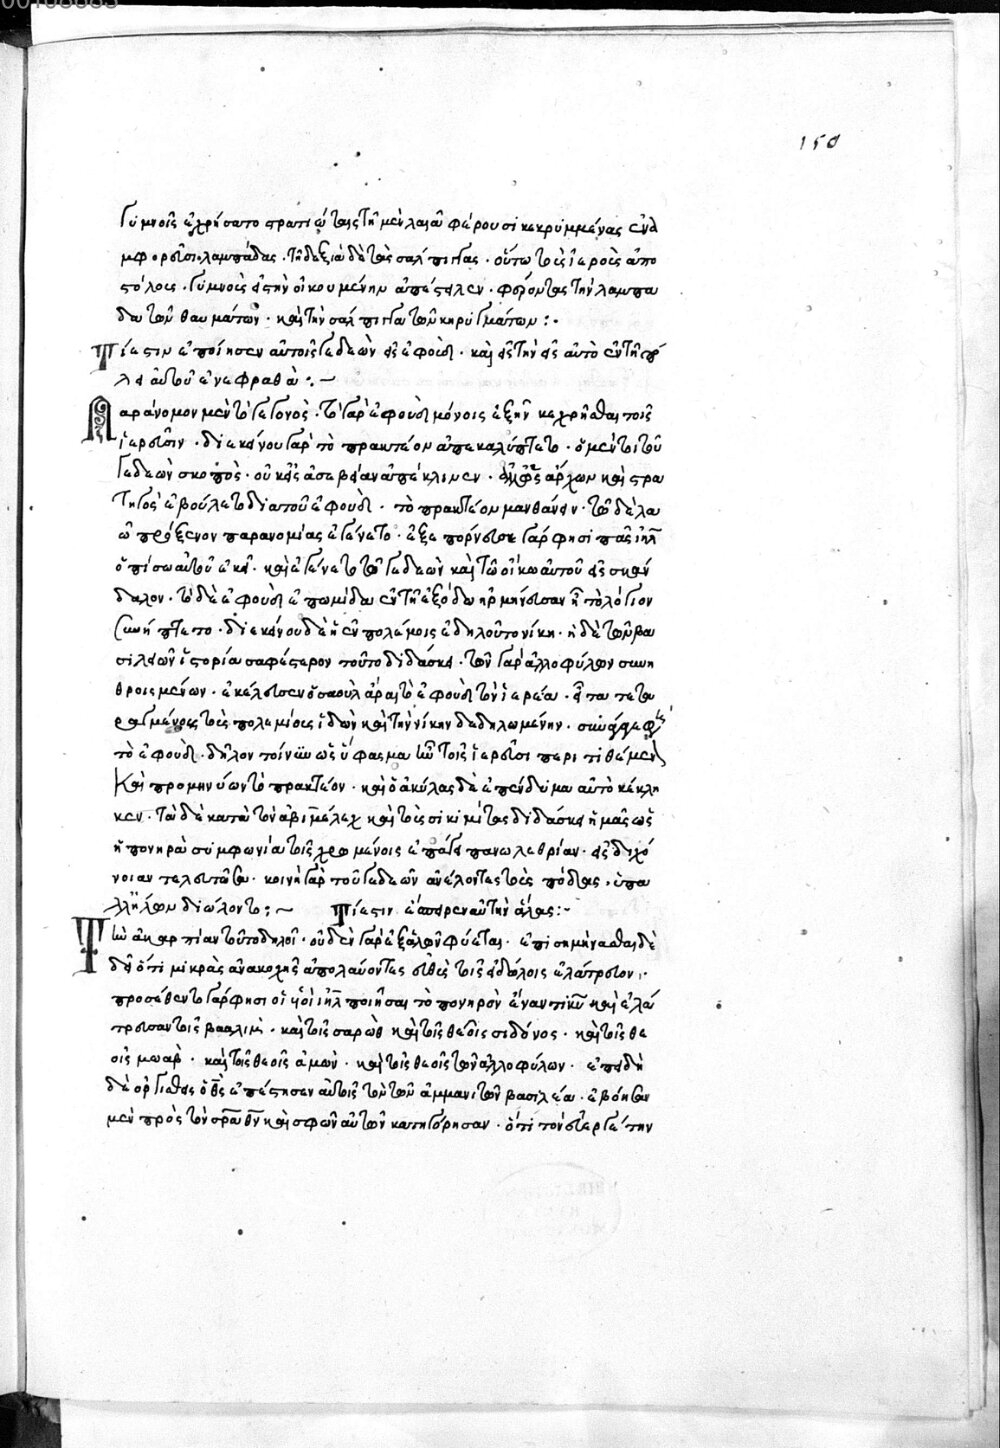 150
γυμνοῖς ἐχρήσατο στρατιώταις τῇ μὲν λαιᾷ φέρουσι κεκρυμμένας ἐν ἀ
μφορεῦσι λαμπάδας · τῇ δεξιᾷ δὲ τὰς σάλπιγγας · οὕτω τοῖς ἱεροῖς ἀπο
στόλοις · γυμνοῖς εἰς τὴν οἰκουμένην ἀπέστειλεν · φέροντας τὴν λαμπά
δα τῶν θαυμάτων · καὶ τὴν σάλπιγγα τῶν κηρυγμάτων :·
Τί ἐστιν ἐποίησεν αὐτοῖς γεδεὼν εἰς ἐφοὺδ · καὶ ἔστησεν αὐτὸ ἐν τῇ πό
λει αὐτοῦ ἐν ἐφραθὰ :· ~
Παράνομον μὲν τὸ γεγονός · τὸ γὰρ ἐφοὺδ μόνοις ἐξῆν κεχρῆσθαι τοῖς
ἱερεῦσιν · δι' ἐκείνου γὰρ τὸ πρακτέον ἀπεκαλύπτετο · ὁ μέν τοι τοῦ
γεδεὼν σκοπὸς · οὐκ εἰς ἀσέβειαν ἀπέκλινεν · ἀλλ' ὡς ἄρχων καὶ στρα
τηγὸς ἐβούλετο διὰ τοῦ ἐφοὺδ · τὸ πρακτέον μανθάνειν · τῷ δὲ λα
ῷ πρόξενον παρανομίας ἐγένετο · ἐξεπόρνευσε γάρ φησι πᾶς ἰηλ
ὀπίσω αὐτοῦ ἐκεῖ · καὶ ἐγένετο τῷ γεδεὼν καὶ τῷ οἴκῳ αὐτοῦ εἰς σκάν
δαλον · τὸ δὲ ἐφοὺδ ἐπωμίδα ἐν τῇ ἐξόδῳ ἡρμήνευσαν ᾗ τὸ λόγιον
συνήπτετο · δι' ἐκείνου δὲ ἡ ἐν πολέμοις ἐδηλοῦτο νίκη · ἡ δὲ τῶν βα
σιλειῶν ἱστορία σαφέστερον τοῦτο διδάσκει · τῶν γὰρ ἀλλοφύλων συνη
θροισμένων · ἐκέλευσεν ὁ σαοὺλ ἆραι τὸ ἐφοὺδ τὸν ἱερέα · εἶτα τετα
ραγμένους τοὺς πολεμίους ἰδὼν καὶ τὴν νίκην δεδηλωμένην · συνάγαγε φησὶ
τὸ ἐφούδ · δῆλον τοίνυν ὡς ὕφασμα ἦν τοῖς ἱερεῦσι περιτιθέμενον
καὶ προμηνύων τὸ πρακτέον · καὶ ὁ ἀκύλας δὲ ἐπένδυμα αὐτὸ κέκλη
κεν · Τὰ δὲ κατὰ τὸν ἀβιμέλεχ καὶ τοὺς σικιμίτας διδάσκει ἡμᾶς ὡς
ἡ πονηρὰ συμφωνία τοῖς χρωμένοις ἐπάγει πανωλεθρίαν · εἰς διχό
νοιαν τελευτῶσα · κοινῇ γὰρ τοῦ γεδεὼν ἀνελόντες τοὺς παῖδας · ὑπ' ἀ
λλήλων διώλοντο : ~ Τί ἐστιν ἔσπειρεν αὐτὴν ἅλας :·
Τὴν ἀκαρπίαν τοῦτο δηλοῖ · οὐδὲν γὰρ ἐξ ἁλῶν φύεται · ἐπισημήνασθαι δὲ
δεῖ ὅτι μικρᾶς ἀνακωχῆς ἀπολαύοντες εὐθὺς τοῖς εἰδώλοις ἐλάτρευον ·
προσέθεντο γάρ φησι οἱ υἱοὶ ιηλ ποιῆσαι τὸ πονηρὸν ἐναντίον κυ καὶ ἐλά
τρευσαν τοῖς βααλὶμ · καὶ τοῖς σαρὼθ καὶ τοῖς θεοῖς σιδῶνος · καὶ τοῖς θε
οῖς μωάβ · καὶ τοῖς θεοῖς ἀμών · καὶ τοῖς θεοῖς τῶν ἀλλοφύλων · ἐπειδὴ
δὲ ὀργισθεὶς ὁ θς ἐπέστησεν αὐτοῖς τὸν τῶν ἀμμανιτῶν βασιλέα · ἐβόησαν
μὲν πρὸς τὸν σρα θν καὶ σφῶν αὐτῶν κατηγόρησαν · ὅτι τὸν εὐεργέτην